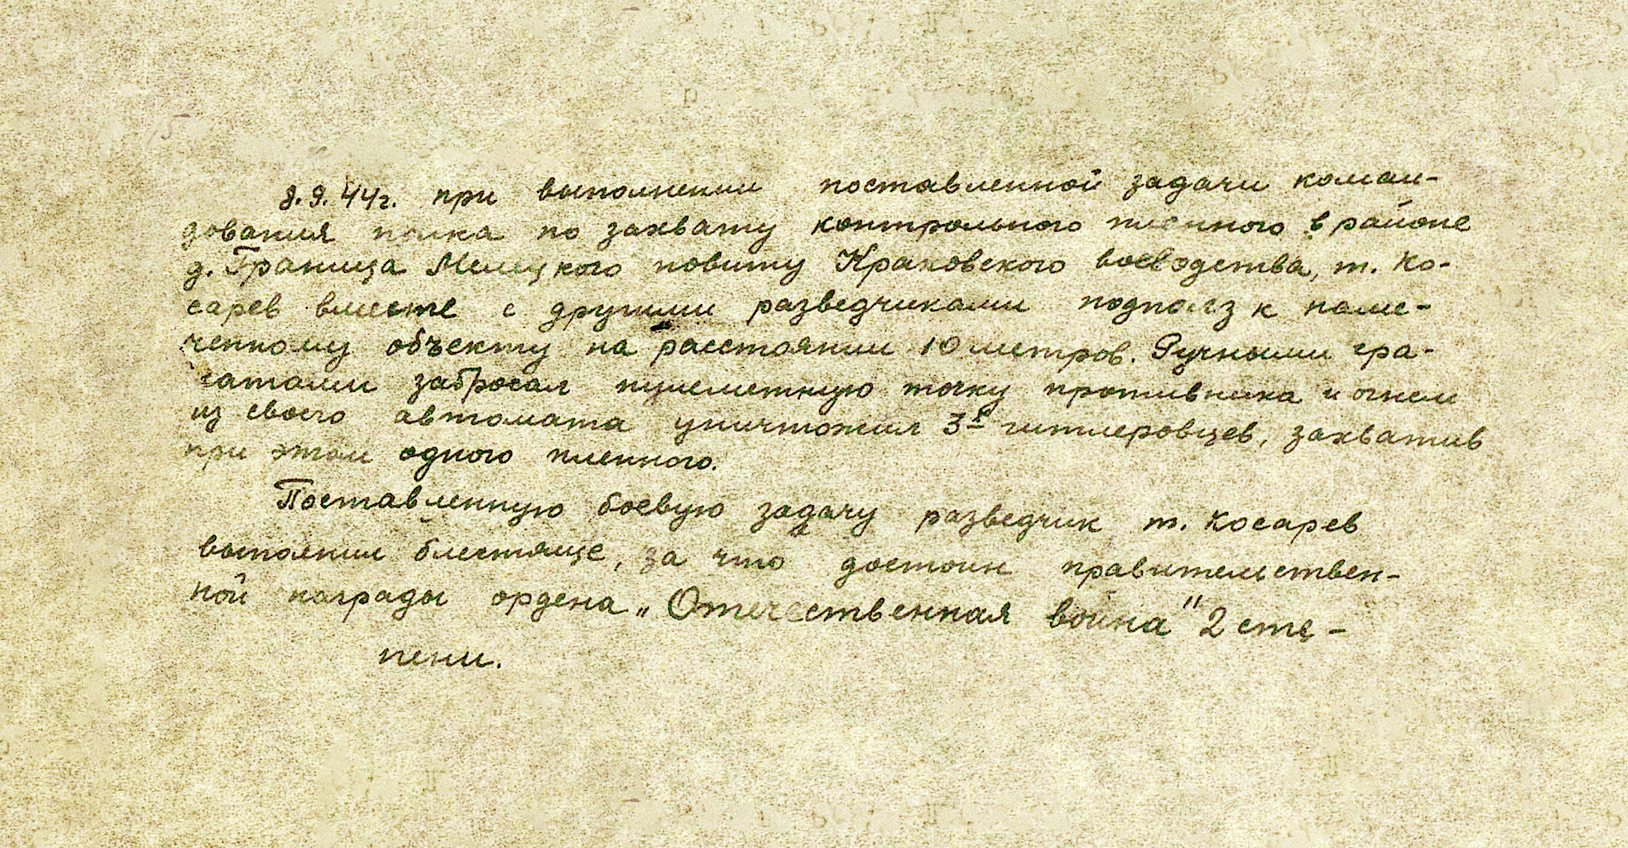 8.9.44г. при выполнении поставленной задачи коман-
дования полка по захвату контрольного пленного в районе
д. Граница Мелецкого повиту Краковского воеводства, т. Ко-
сарев вместе с другими разведчиками подполз к наме-
ченному объекту на расстоянии 10 метров. Ручными гра-
натами забросал пулеметную точку противника и огнем
из своего автомата уничтожил 3х гитлеровцев, захватив
при этом одного пленного.
Поставленную боевую задачу разведчик т. Косарев
выполнил блестяще, за что достоин правительствен-
ной награды ордена „Отечественная война" 2 сте-
пени.